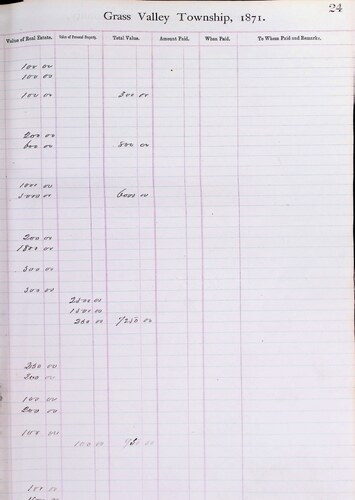 24
Grass Valley Township, 1871.
Value of Real Estate. Value of Personal Property. Total Value. Amount Paid. When Paid. To Whom Paid and Remarks.
100 00
100 00
100 00 300 00
200 00
600 00 800 00
1000 00
5000 00 6000 00
200 00
1800 00
300 00
300 00
2500 00
1500 00
250 00 7250 00
350 00
300 00
100 00
200 00
100 00
100 00
100 00